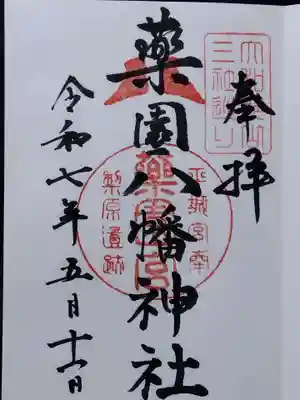 奉拝
大和郡山
三社巡り
薬園八幡神社
平城宮南
薬園宮
梨原遺跡
令和七年五月十一日